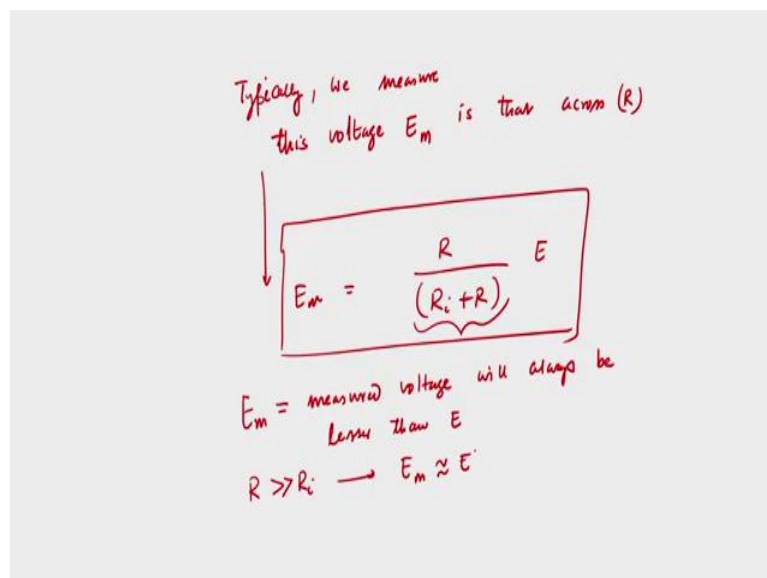 Typically, we measure
this voltage Em is that across (R)
Em = R / (Ri + R) E
Em = measured voltage will always be
lesser than E
R >> Ri → Em ≈ E